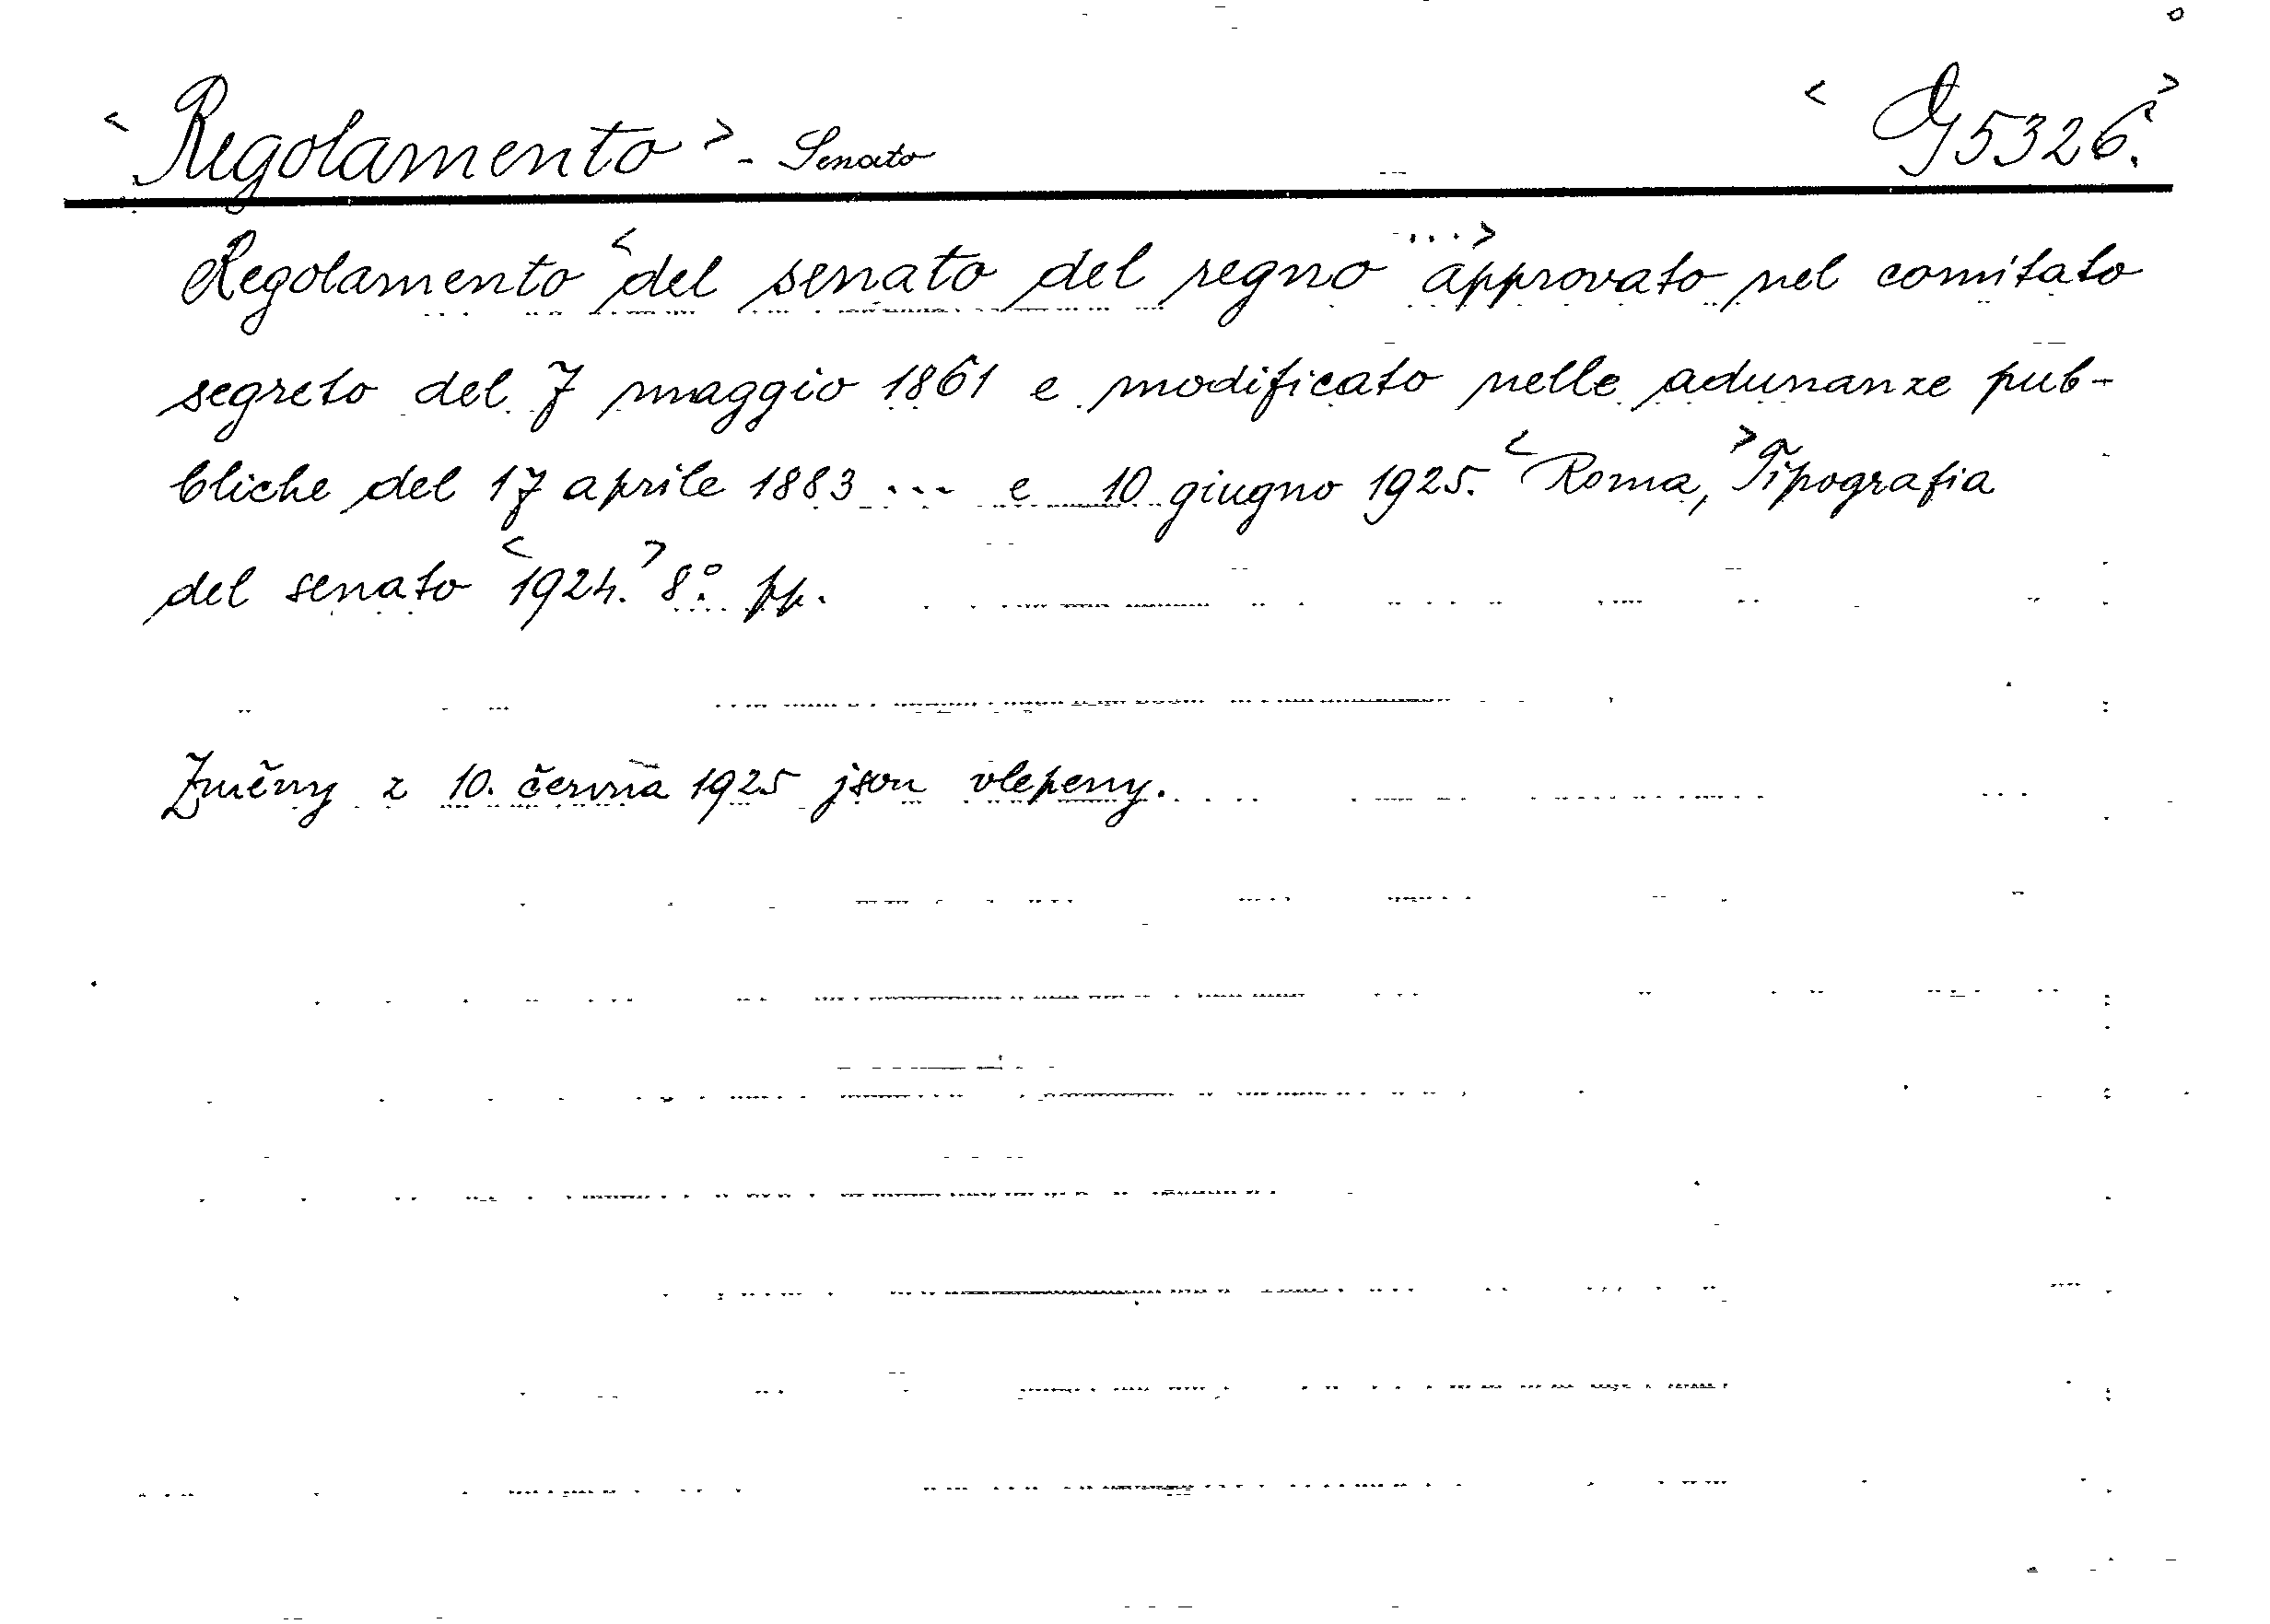 <Regolamento> - Senato <G 5326.>
Regolamento <del senato del regno ...> approvato nel comitato
segreto del 7 maggio 1861 e modificato nelle adunanze pub-
bliche del 17 aprile 1883 ... e 10 giugno 1925. <Roma,> Tipografia
del senato <1924.> 8°. pp.
Změny z 10. června 1925 jsou vlepeny.